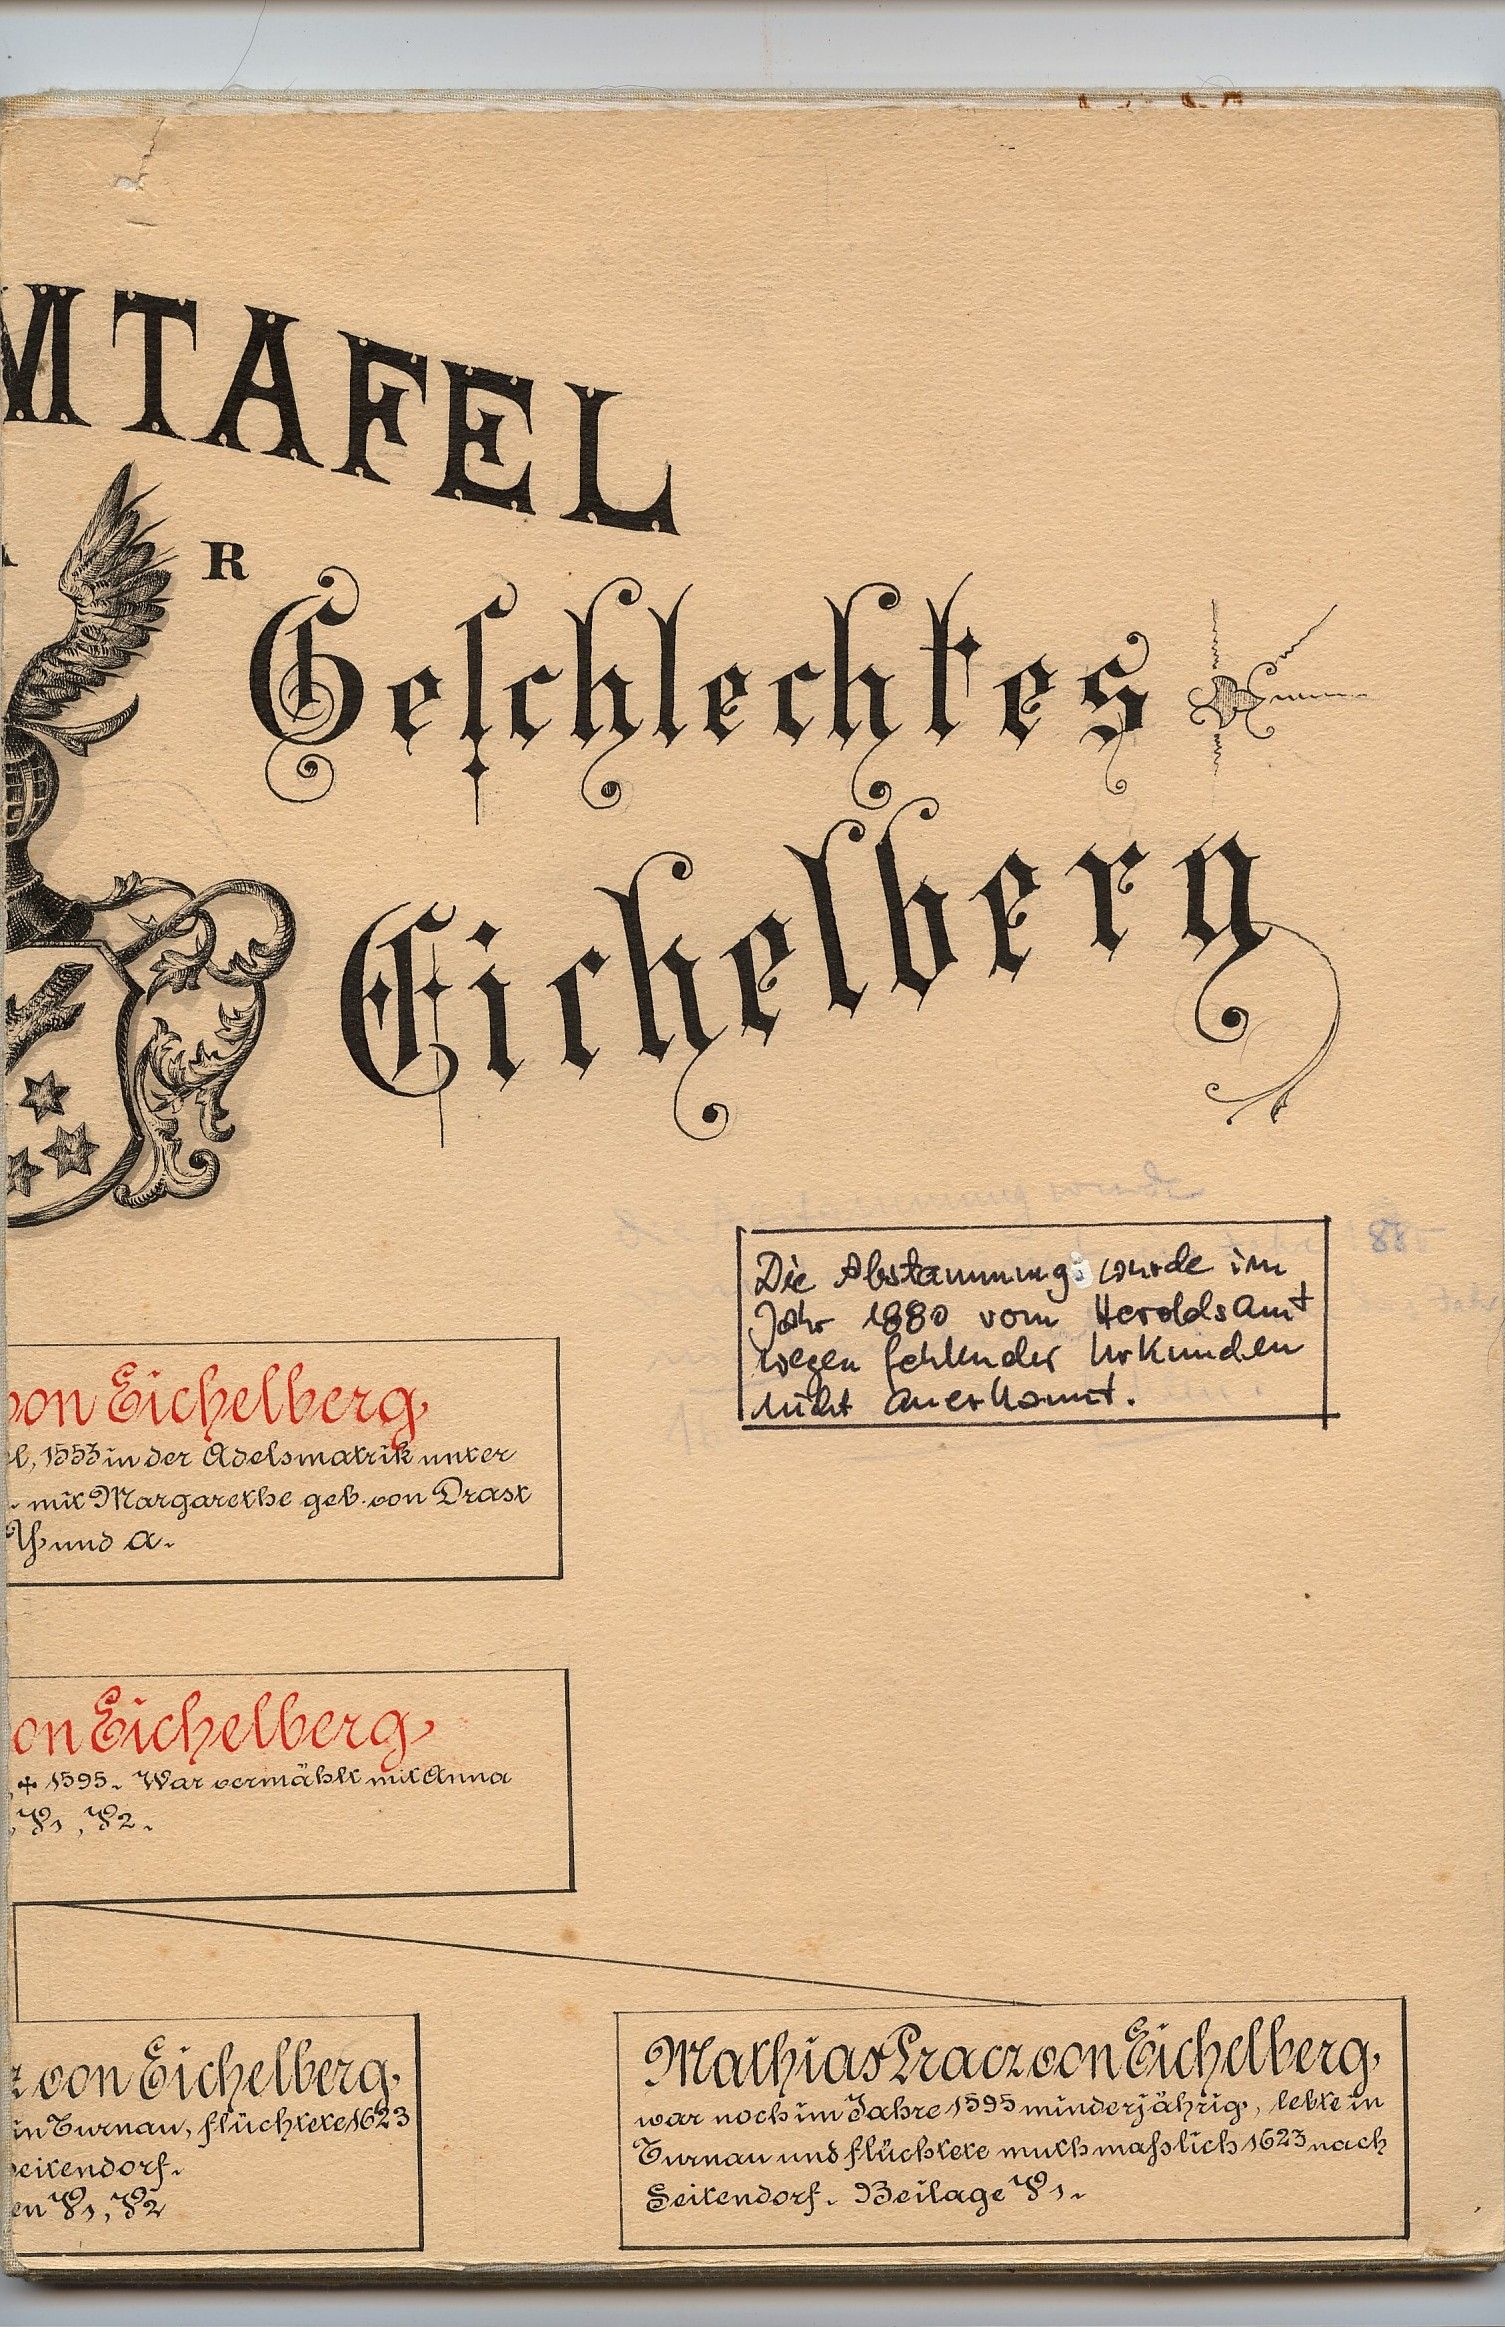 MTAFEL
R
Geſchlechtes
Eichelberg
Die Abstammung wurde im
Jahr 1880 vom Heroldsamt
wegen fehlender Urkunden
nicht anerkannt.
von Eichelberg,
1553 in der Adelsmatrik unter
mit Margarethe geb. von Drast
und A.
on Eichelberg,
✠ 1595. War vermählt mit Anna
z von Eichelberg,
in Turnau, flüchtete 1623
Seitendorf.
Mathias Pracz von Eichelberg,
war noch im Jahre 1595 minderjährig, lebte in
Turnau und flüchtete muthmaßlich 1623 nach
Seitendorf. Beilage